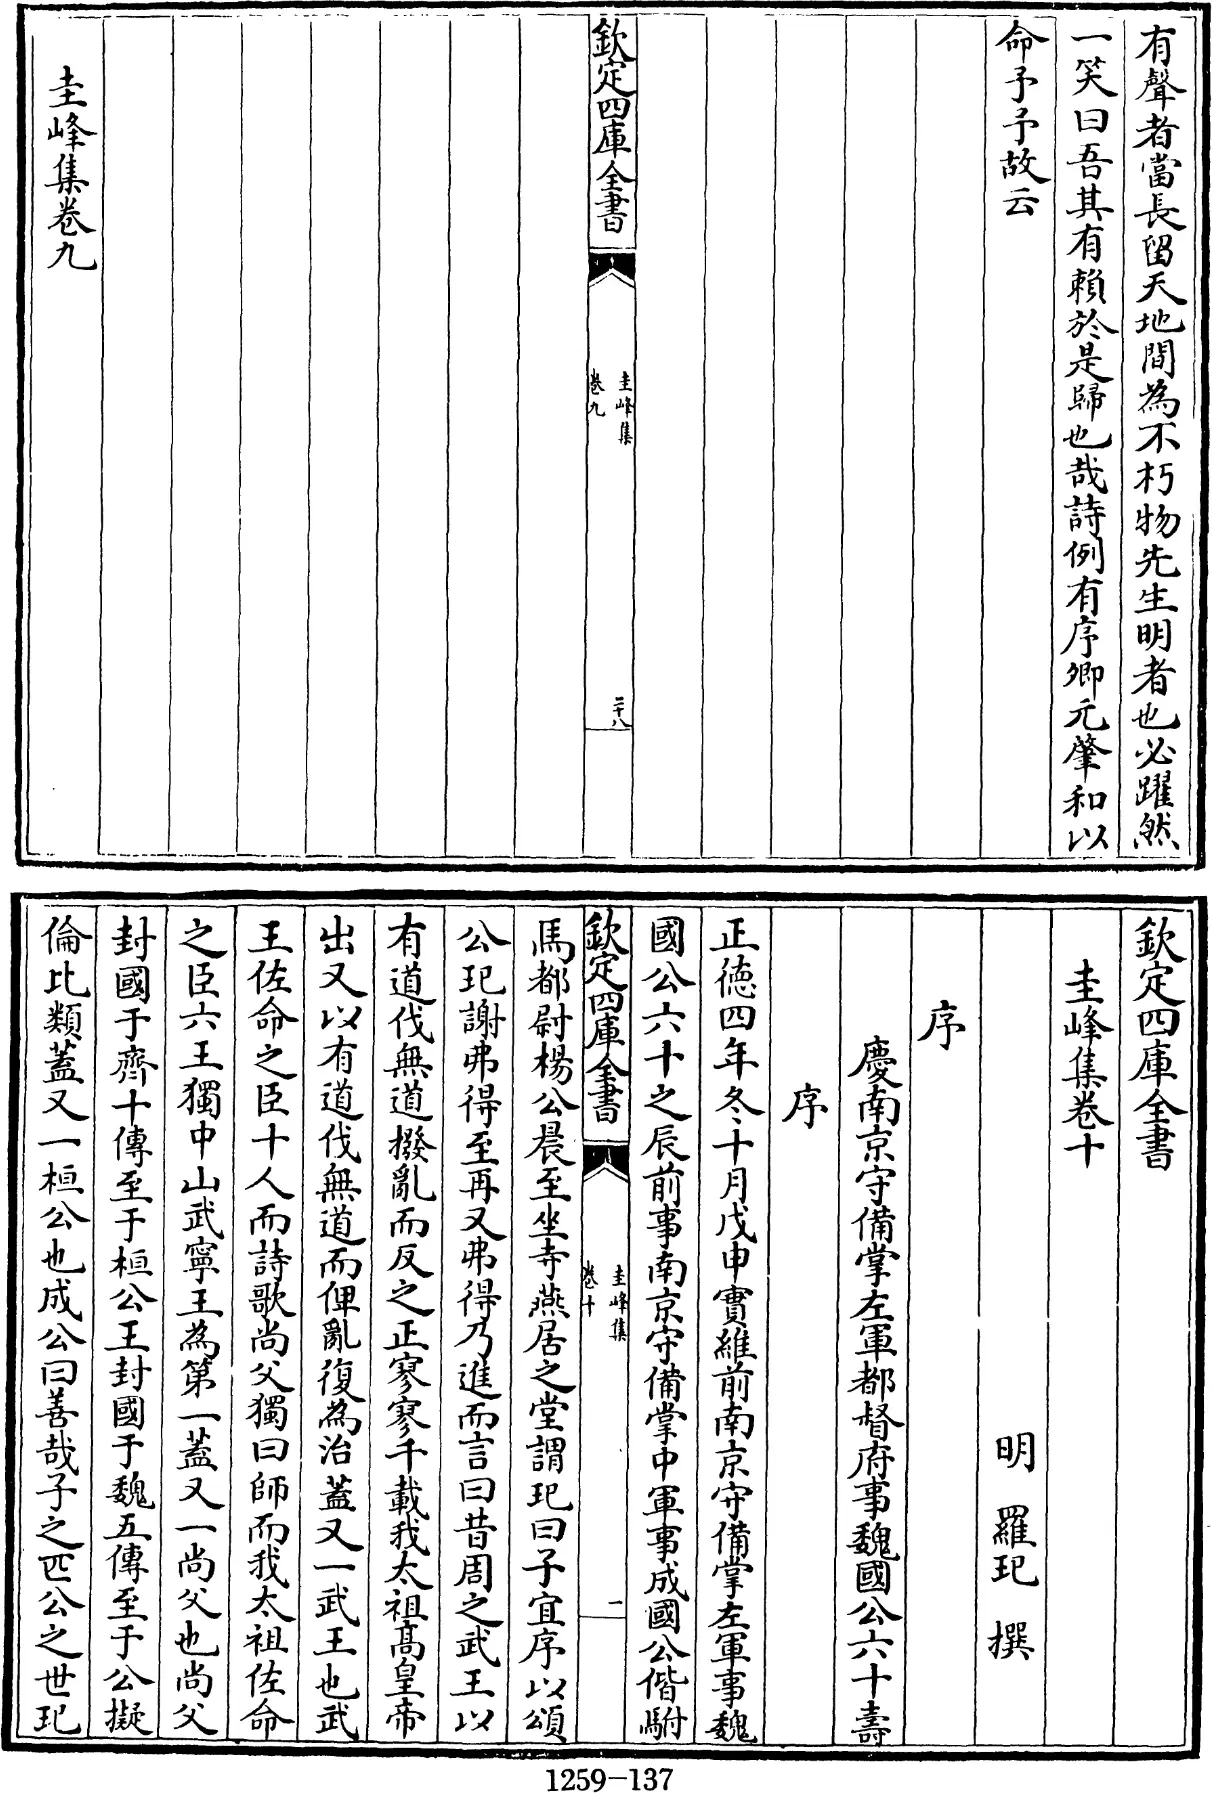 有聲者當長留天地間為不朽物先生明者也必躍然
一笑曰吾其有賴於是歸也哉詩例有序卿元肇和以
命予予故云
欽定四庫全書
圭峰集
卷九
二十八
圭峰集卷九
欽定四庫全書
圭峰集卷十
明 羅玘 撰
序
慶南京守備掌左軍都督府事魏國公六十壽
序
正德四年冬十月戊申實維前南京守備掌左軍事魏
國公六十之辰前事南京守備掌中軍事成國公偕駙
欽定四庫全書
圭峰集
卷十
一
馬都尉楊公晨至坐寺燕居之堂謂玘曰子宜序以頌
公玘謝弗得至再又弗得乃進而言曰昔周之武王以
有道伐無道撥亂而反之正寥寥千載我太祖高皇帝
出又以有道伐無道而俾亂復為治蓋又一武王也武
王佐命之臣十人而詩歌尚父獨曰師而我太祖佐命
之臣六王獨中山武寧王為第一蓋又一尚父也尚父
封國于齊十傳至于桓公王封國于魏五傳至于公擬
倫比類蓋又一桓公也成公曰善哉子之匹公之世玘
1259-137